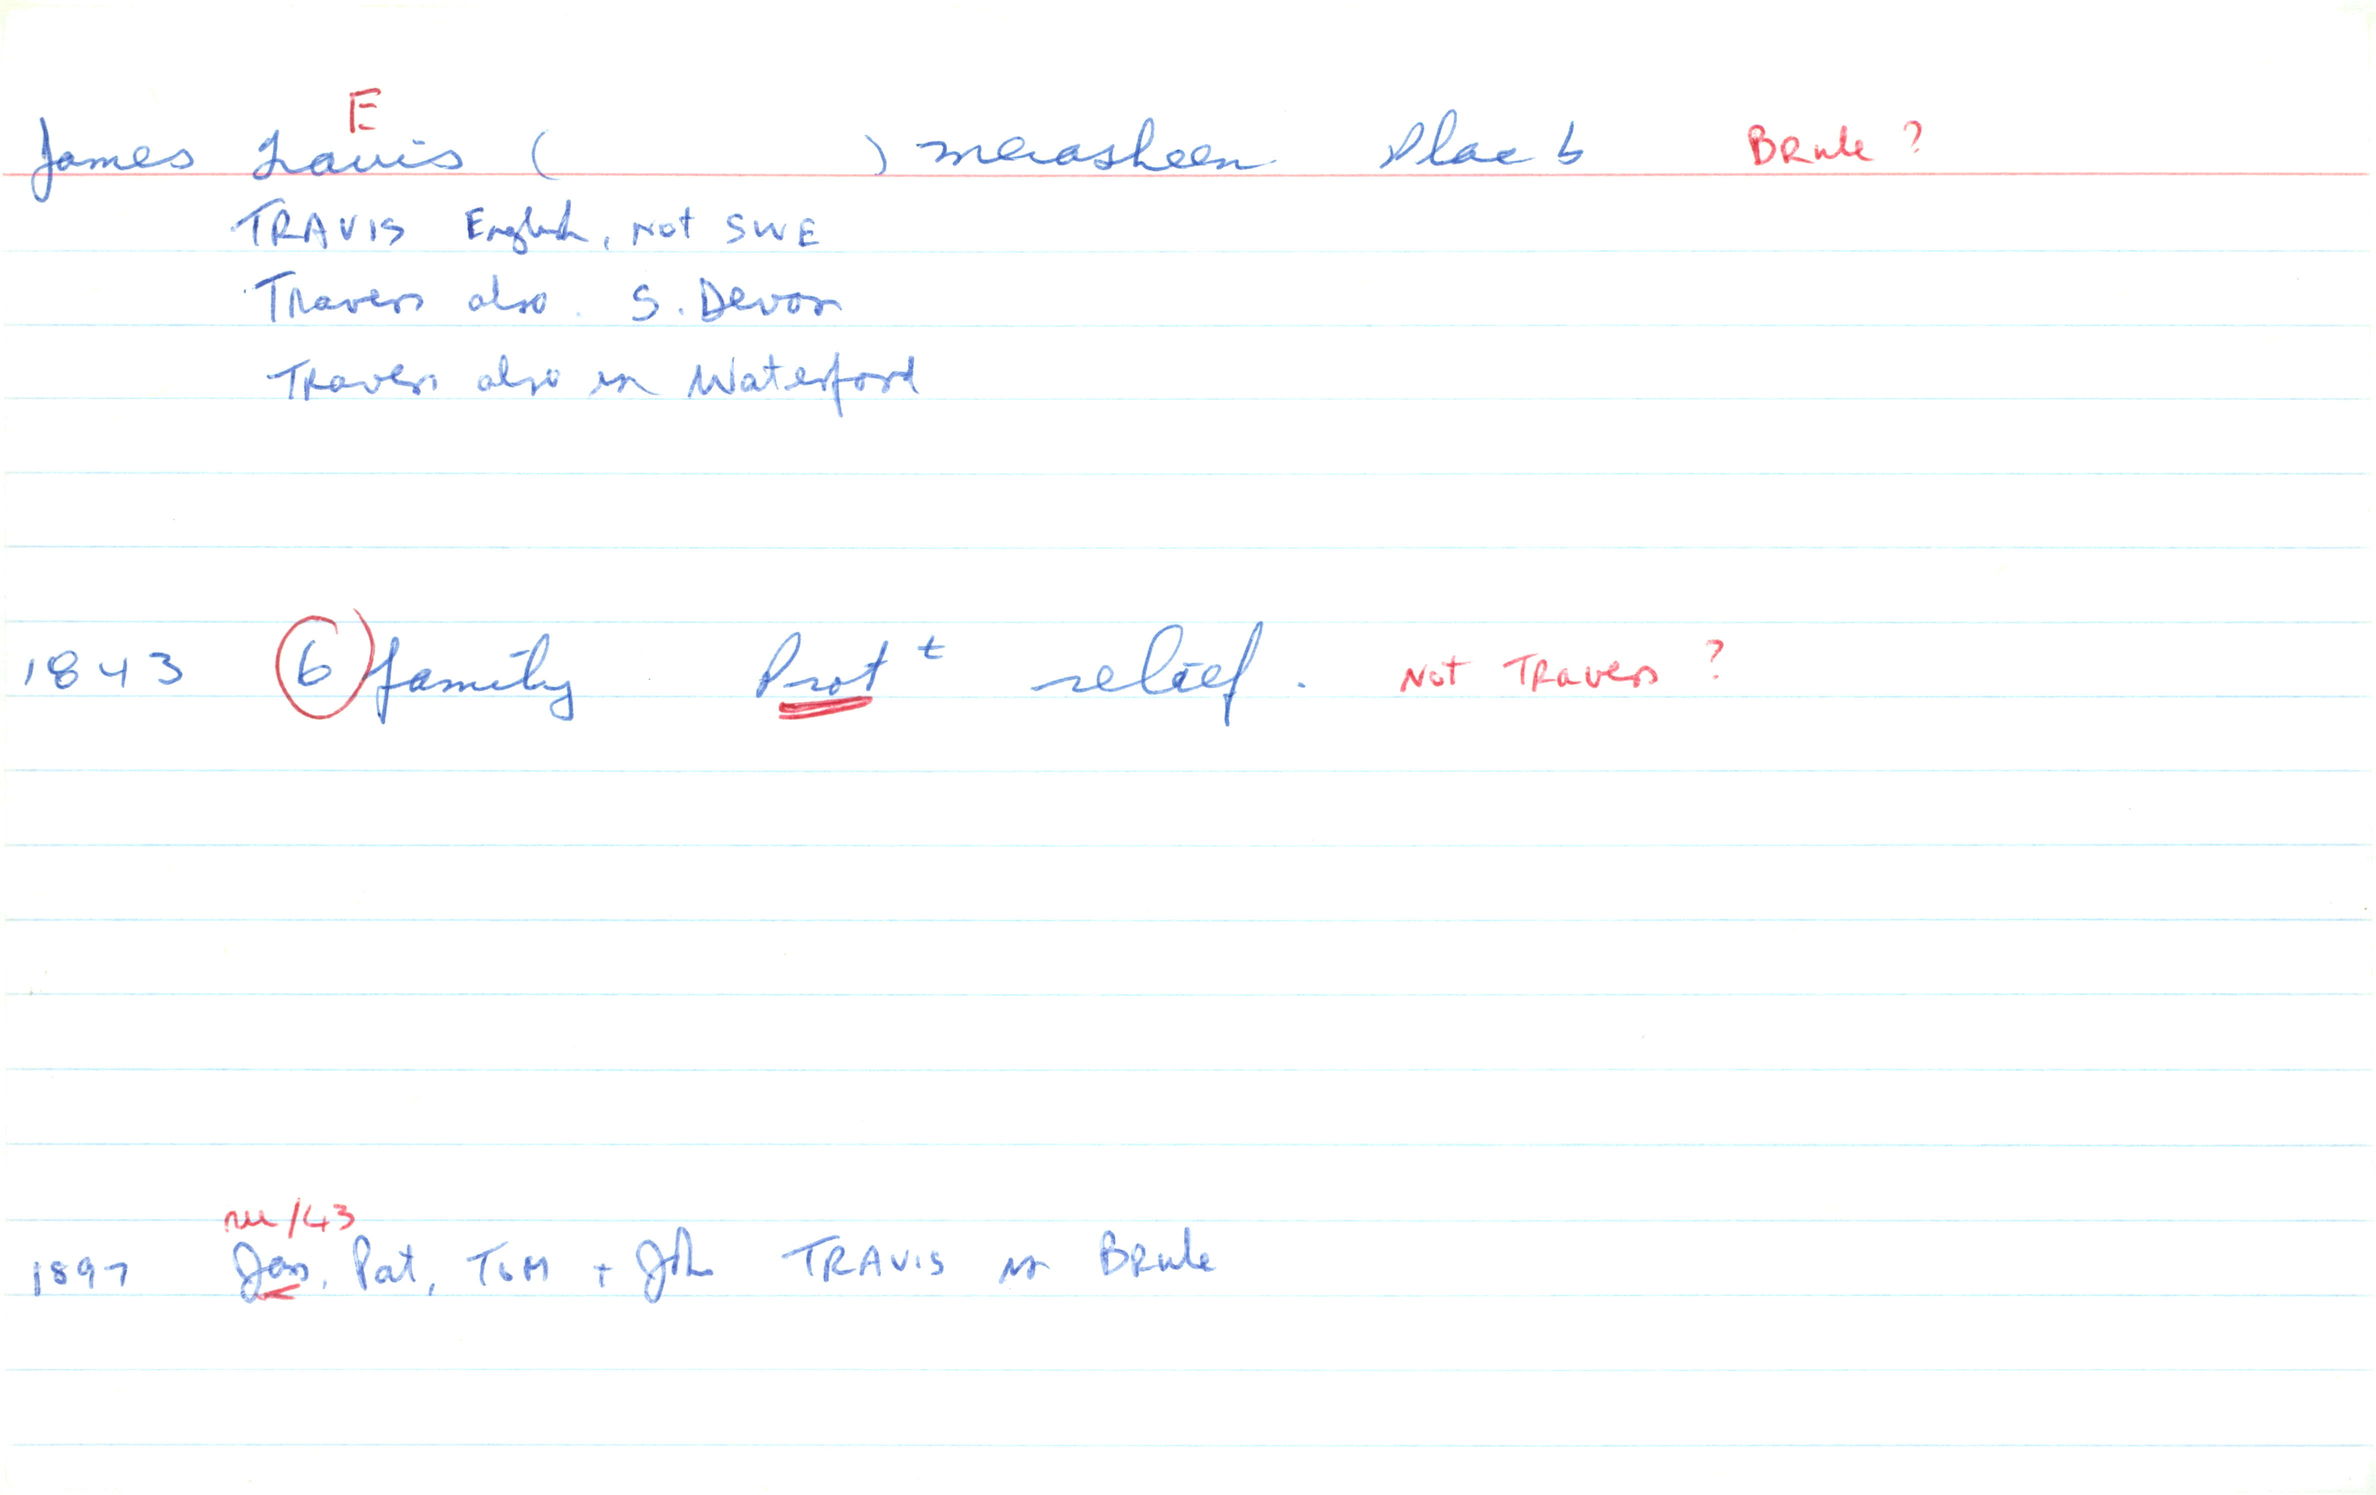 E
James Travis ( ) Merasheen Plac b Brule ?
TRAVIS English, not SWE
Travers also S. Devon
Travers also in Waterford
1843 6 family Prot t relief. Not Travers ?
/43
1897 Jas, Pat, Tom + Jn TRAVIS Brule